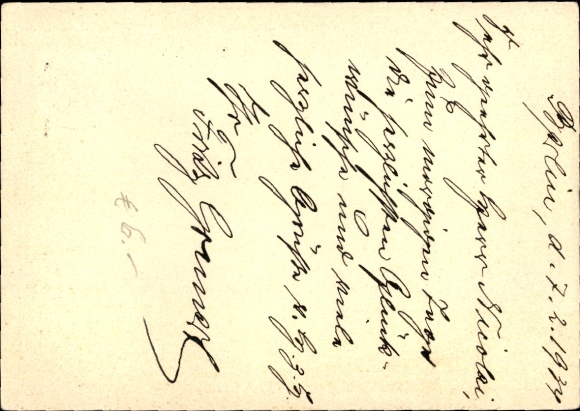 Berlin, d. 7. 2. 1934
Sehr geehrter Herr Nicolai,
Zum morgigen Tage
die herzlichsten Glück-
wünsche und viele
herzliche Grüße u. H. J. H.
Ihr
Fritz
£ 6.-